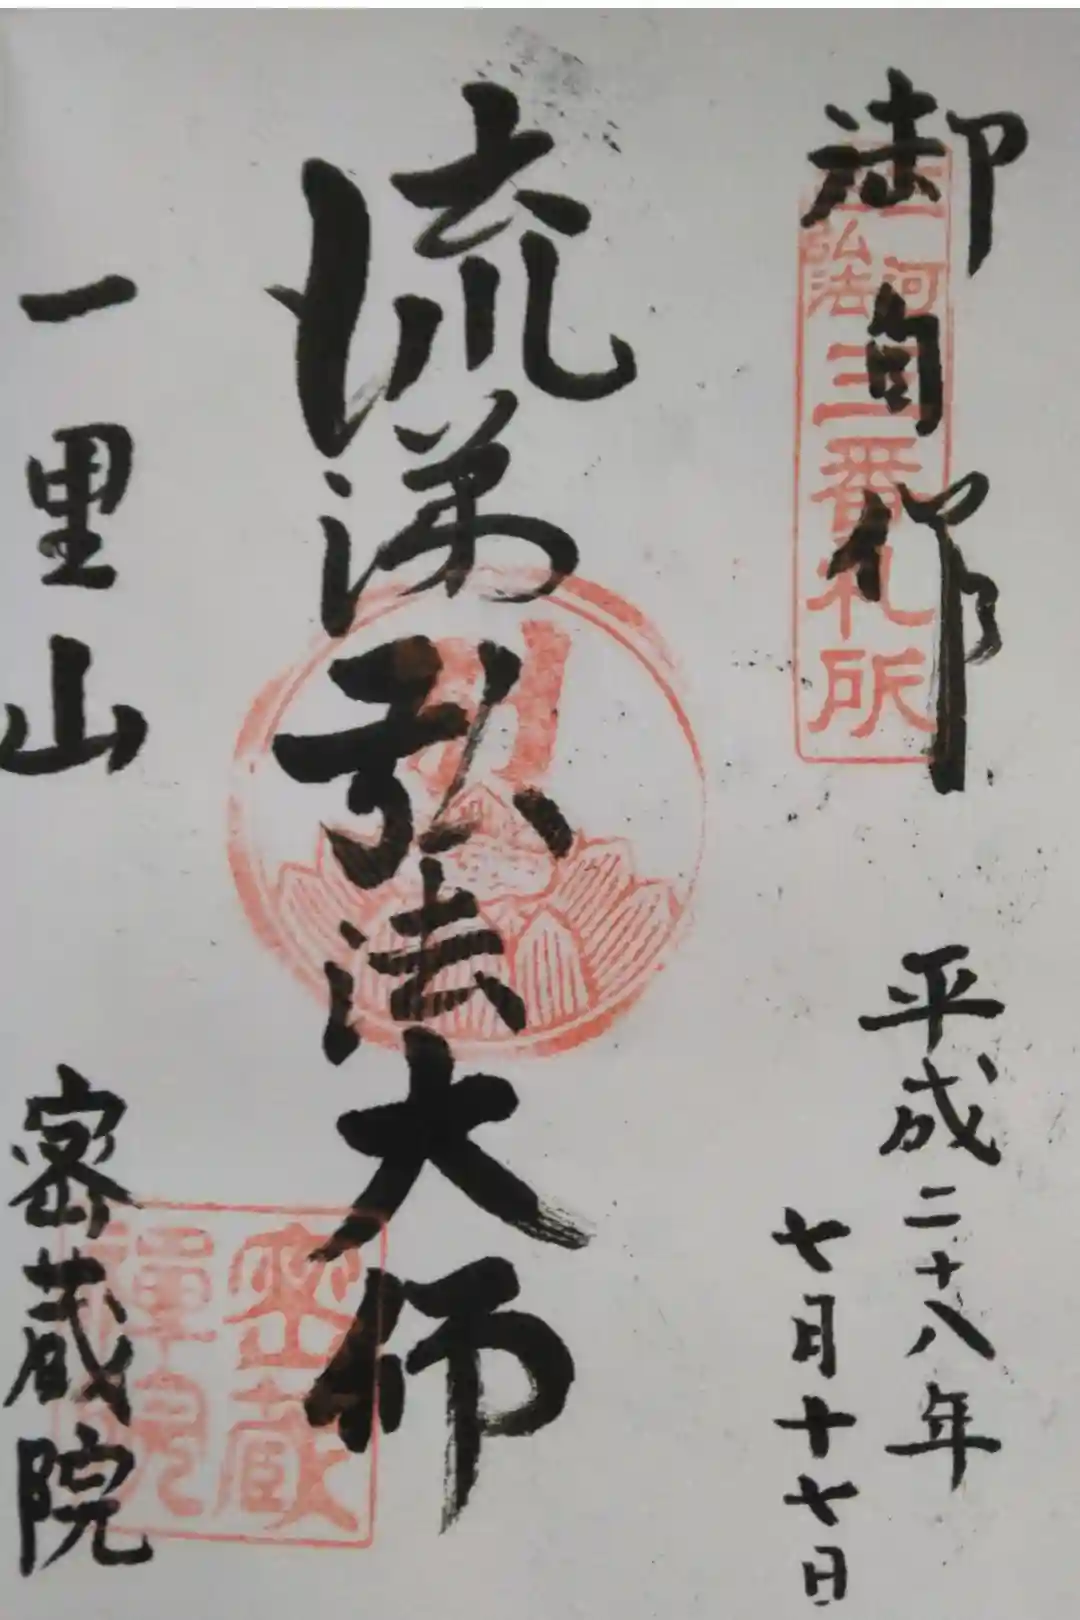 御自作
三河
弘法
三番札所
平成二十八年
七月十七日
流涕弘法大師
一里山
密蔵院
密蔵
禅院